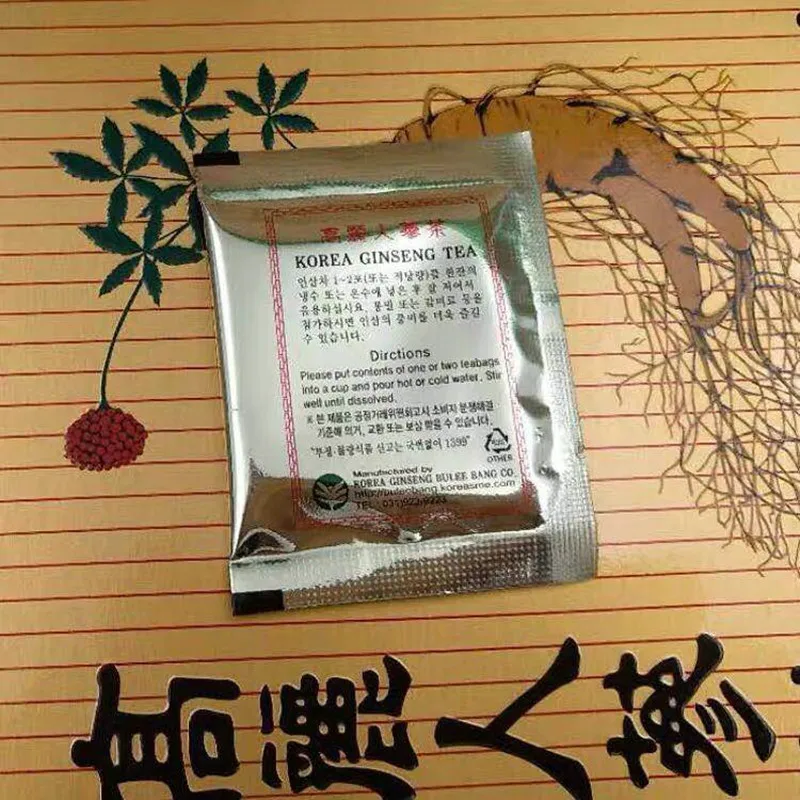 高麗人蔘茶
KOREA GINSENG TEA
인삼차 1~2포(또는 적당량)를 한잔의
냉수 또는 온수에 넣은 후 잘 저어서
음용하십시요. 통밀 또는 감미료 등을
첨가하시면 인삼의 풍미를 더욱 즐길
수 있습니다.
Dirctions
Please put contents of one or two teabags
into a cup and pour hot or cold water. Stir
well until dissolved.
※ 본 제품은 공정거래위원회고시 소비자 분쟁해결
기준에 의거, 교환 또는 보상 받을 수 있습니다.
"부정·불량식품 신고는 국번없이 1399"
OTHER
Manufactured by
KOREA GINSENG BULEE BANG CO.
http://buleebang.koreasme.com
TEL: 031)923-9223
高麗人蔘